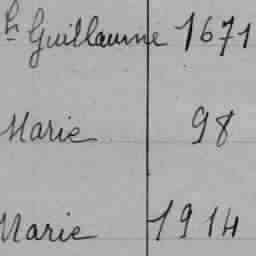 h Guillaume 1671
Marie 98
Marie 1914